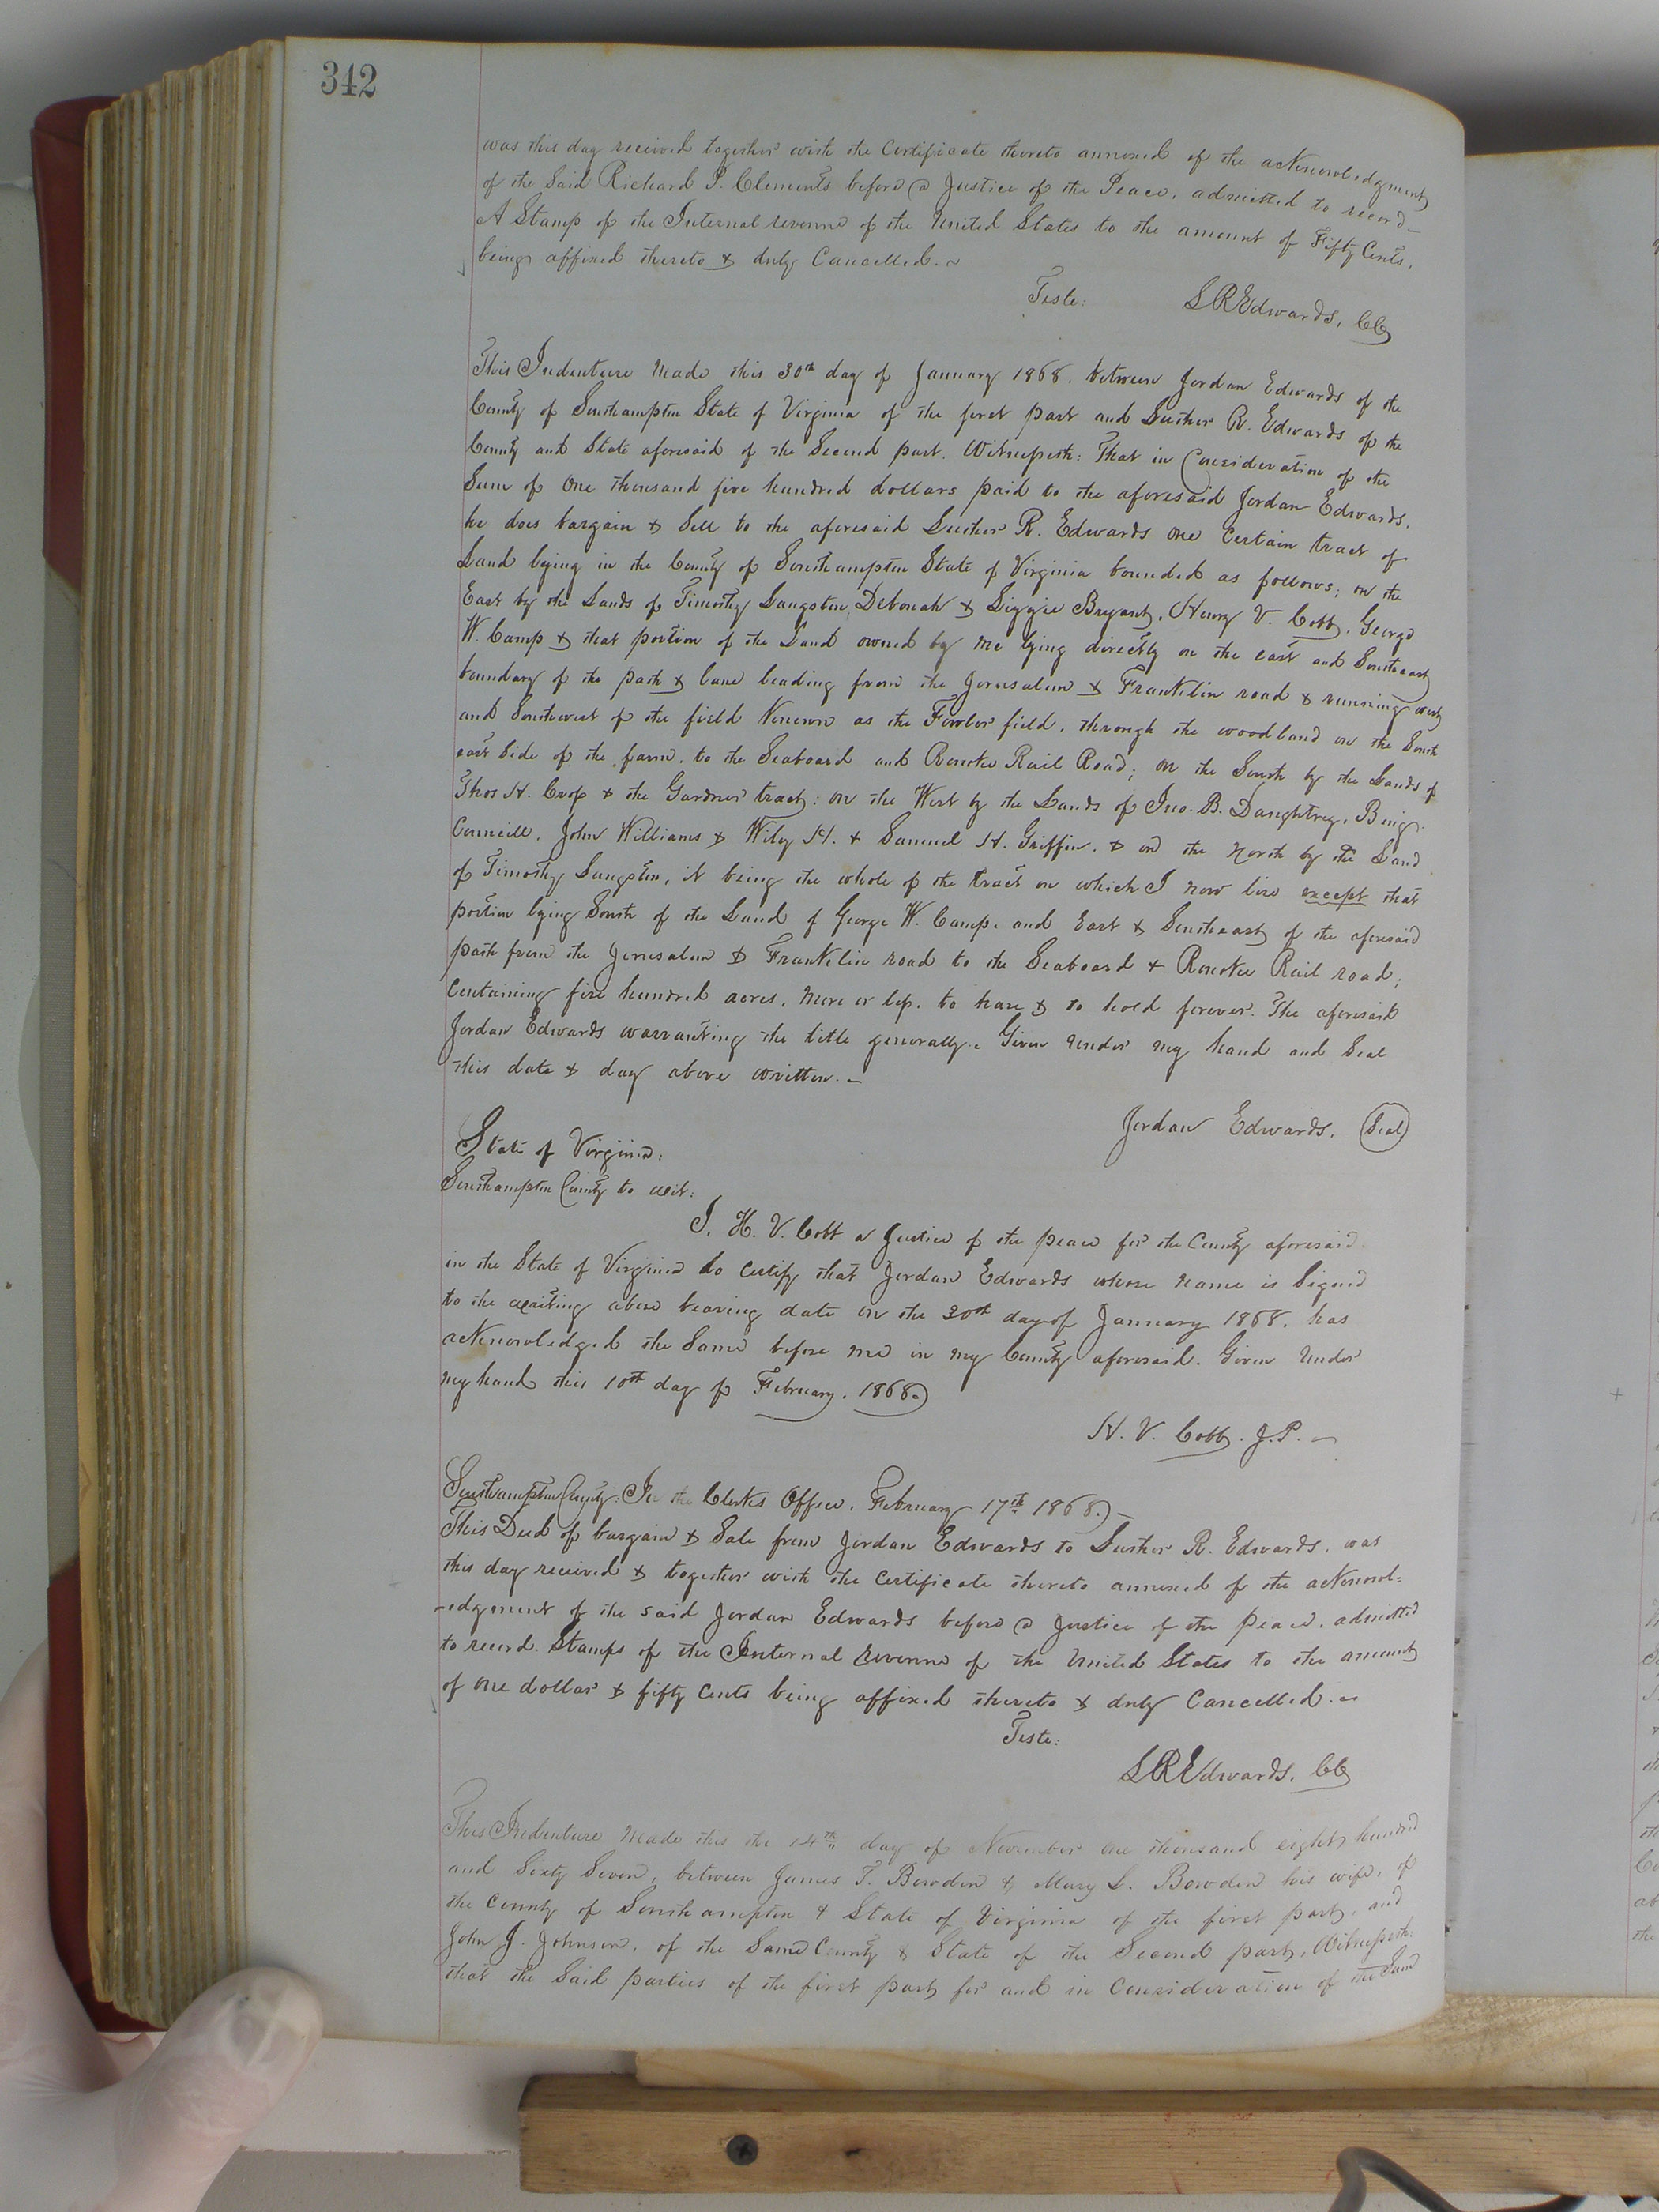 342
was this day received together with the Certificate thereto annexed of the acknowledgment
of the Said Richard P. Clements before a Justice of the Peace, admitted to record –
A Stamp of the Internal revenue of the United States to the amount of Fifty Cents,
being affixed thereto & duly Cancelled. ~
Teste: L R Edwards, CC
This Indenture Made this 30th day of January 1868. between Jordan Edwards of the
County of Southampton State of Virginia of the first part and Luther R. Edwards of the
County and State aforesaid of the Second part. Witnesseth: That in Consideration of the
Sum of One thousand five hundred dollars paid to the aforesaid Jordan Edwards.
he does bargain & Sell to the aforesaid Luther R. Edwards one Certain tract of
Land lying in the County of Southampton State of Virginia bounded as follows; on the
East by the Lands of Timothy Langston, Deborah & Liggie Bryant, Henry V. Cobb, George
W. Camp & that portion of the Land owned by me lying directly on the east and Southeast
boundary of the path & lane leading from the Jerusalem & Franklin road & running
and Southwest of the field Known as the Fowler field, through the woodland on the South
east Side of the farm, to the Seaboard and Roanoke Rail Road; on the South by the Lands of
Thos H. & the Gardner tract: on the West by the Lands of Jno. B. Daughtrey, Benj.
Councill, John Williams & Wiley H. & Samuel H. Griffin, & on the North by the Land
of Timothy Langston, it being the whole of the tract on which I now live except that
portion lying South of the Land of George W. Camp, and East & Southeast of the aforesaid
path from the Jerusalem & Franklin road to the Seaboard & Roanoke Rail road;
Containing five hundred acres, more or less, to have & to hold forever. The aforesaid
Jordan Edwards warranting the title generally. Given under my hand and Seal
this date & day above written. –
Jordan Edwards. (Seal)
State of Virginia:
Southampton County to wit:
I, H. V. Cobb a Justice of the peace for the County aforesaid
in the State of Virginia do Certify that Jordan Edwards whose name is Signed
to the writing above bearing date on the 30th day of January 1868, has
acknowledged the Same before me in my County aforesaid. Given under
my hand this 10th day of February, 1868.
H. V. Cobb. J.P. –
Southampton County: In the Clerks Office, February 17th 1868. –
This Deed of bargain & Sale from Jordan Edwards to Luther R. Edwards, was
this day received & together with the Certificate thereto annexed of the acknowl=
-edgment of the said Jordan Edwards before a Justice of the peace, admitted
to record. Stamps of the Internal Revenue of the United States to the amount
of one dollar & fifty Cents being affixed thereto & duly Cancelled. ~
Teste:
L R Edwards, CC
This Indenture Made this the 14th day of November one thousand eight hundred
and Sixty Seven, between James T. Bowden & Mary L. Bowden his wife, of
the County of Southampton & State of Virginia of the first part, and
John J. Johnson, of the Same County & State of the Second part, Witnesseth:
that the Said parties of the first part for and in Consideration of the Sum